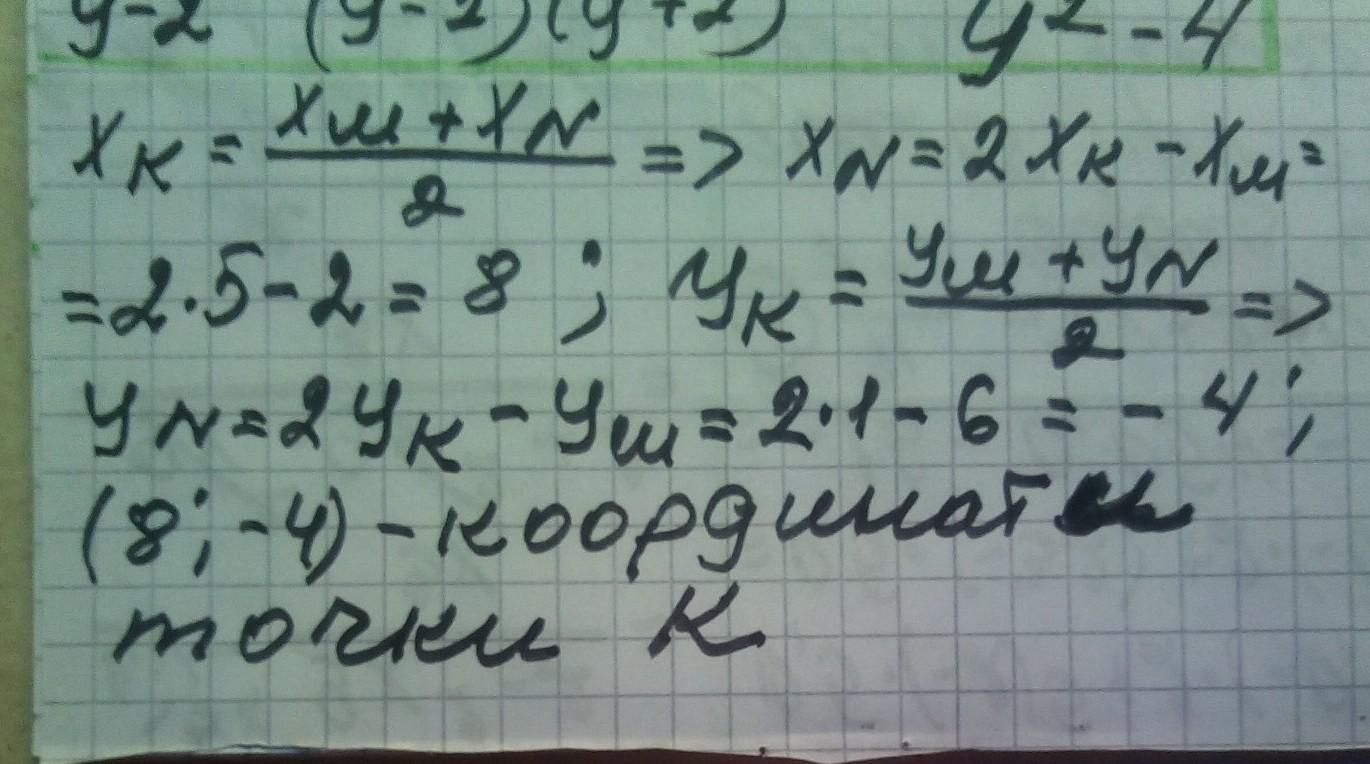 y-2 (y-2)(y+2) y²-4
x_K = (x_M + x_N)/2 => x_N = 2x_K - x_M =
= 2·5 - 2 = 8 ; y_K = (y_M + y_N)/2 =>
y_N = 2y_K - y_M = 2·1 - 6 = -4 ;
(8; -4) - координаты
точки K